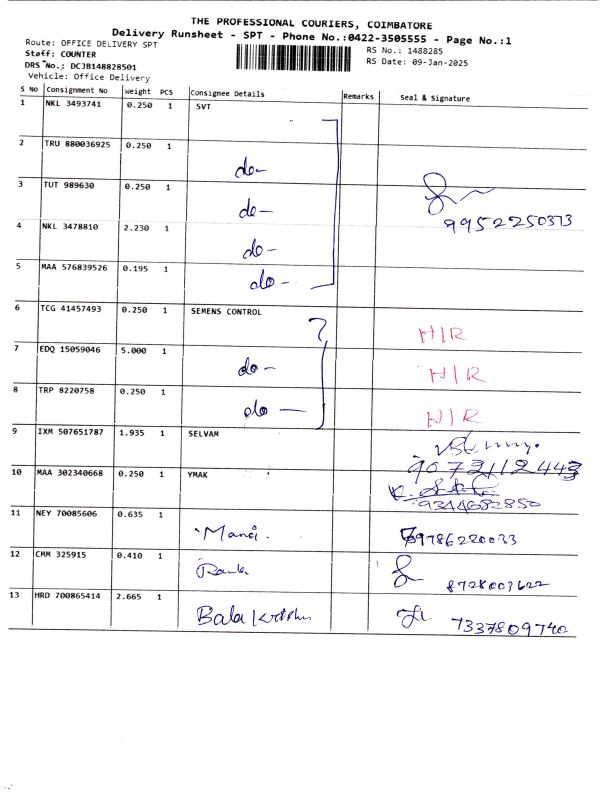 THE PROFESSIONAL COURIERS, COIMBATORE
Delivery Runsheet - SPT - Phone No.:0422-3505555 - Page No.:1
Route: OFFICE DELIVERY SPT
RS No.: 1488285
Staff: COUNTER
RS Date: 09-Jan-2025
DRS No.: DCJB148828501
Vehicle: Office Delivery
S No Consignment No Weight PCS Consignee Details Remarks Seal & Signature
1 NKL 3493741 0.250 1 SVT
2 TRU 880036925 0.250 1 do-
3 TUT 989630 0.250 1 do-
9952250373
4 NKL 3478810 2.230 1 do-
5 MAA 576839526 0.195 1 do-
6 TCG 41457493 0.250 1 SEMENS CONTROL H/R
7 EDQ 15059046 5.000 1 do- H/R
8 TRP 8220758 0.250 1 do- H/R
9 IXM 507651787 1.935 1 SELVAM
10 MAA 302340668 0.250 1 YMAK 9344682850
11 NEY 70085606 0.635 1 Manoi. 9786220033
12 CMM 325915 0.410 1 8728003622
13 HRD 700865414 2.665 1 Bala 7337809740